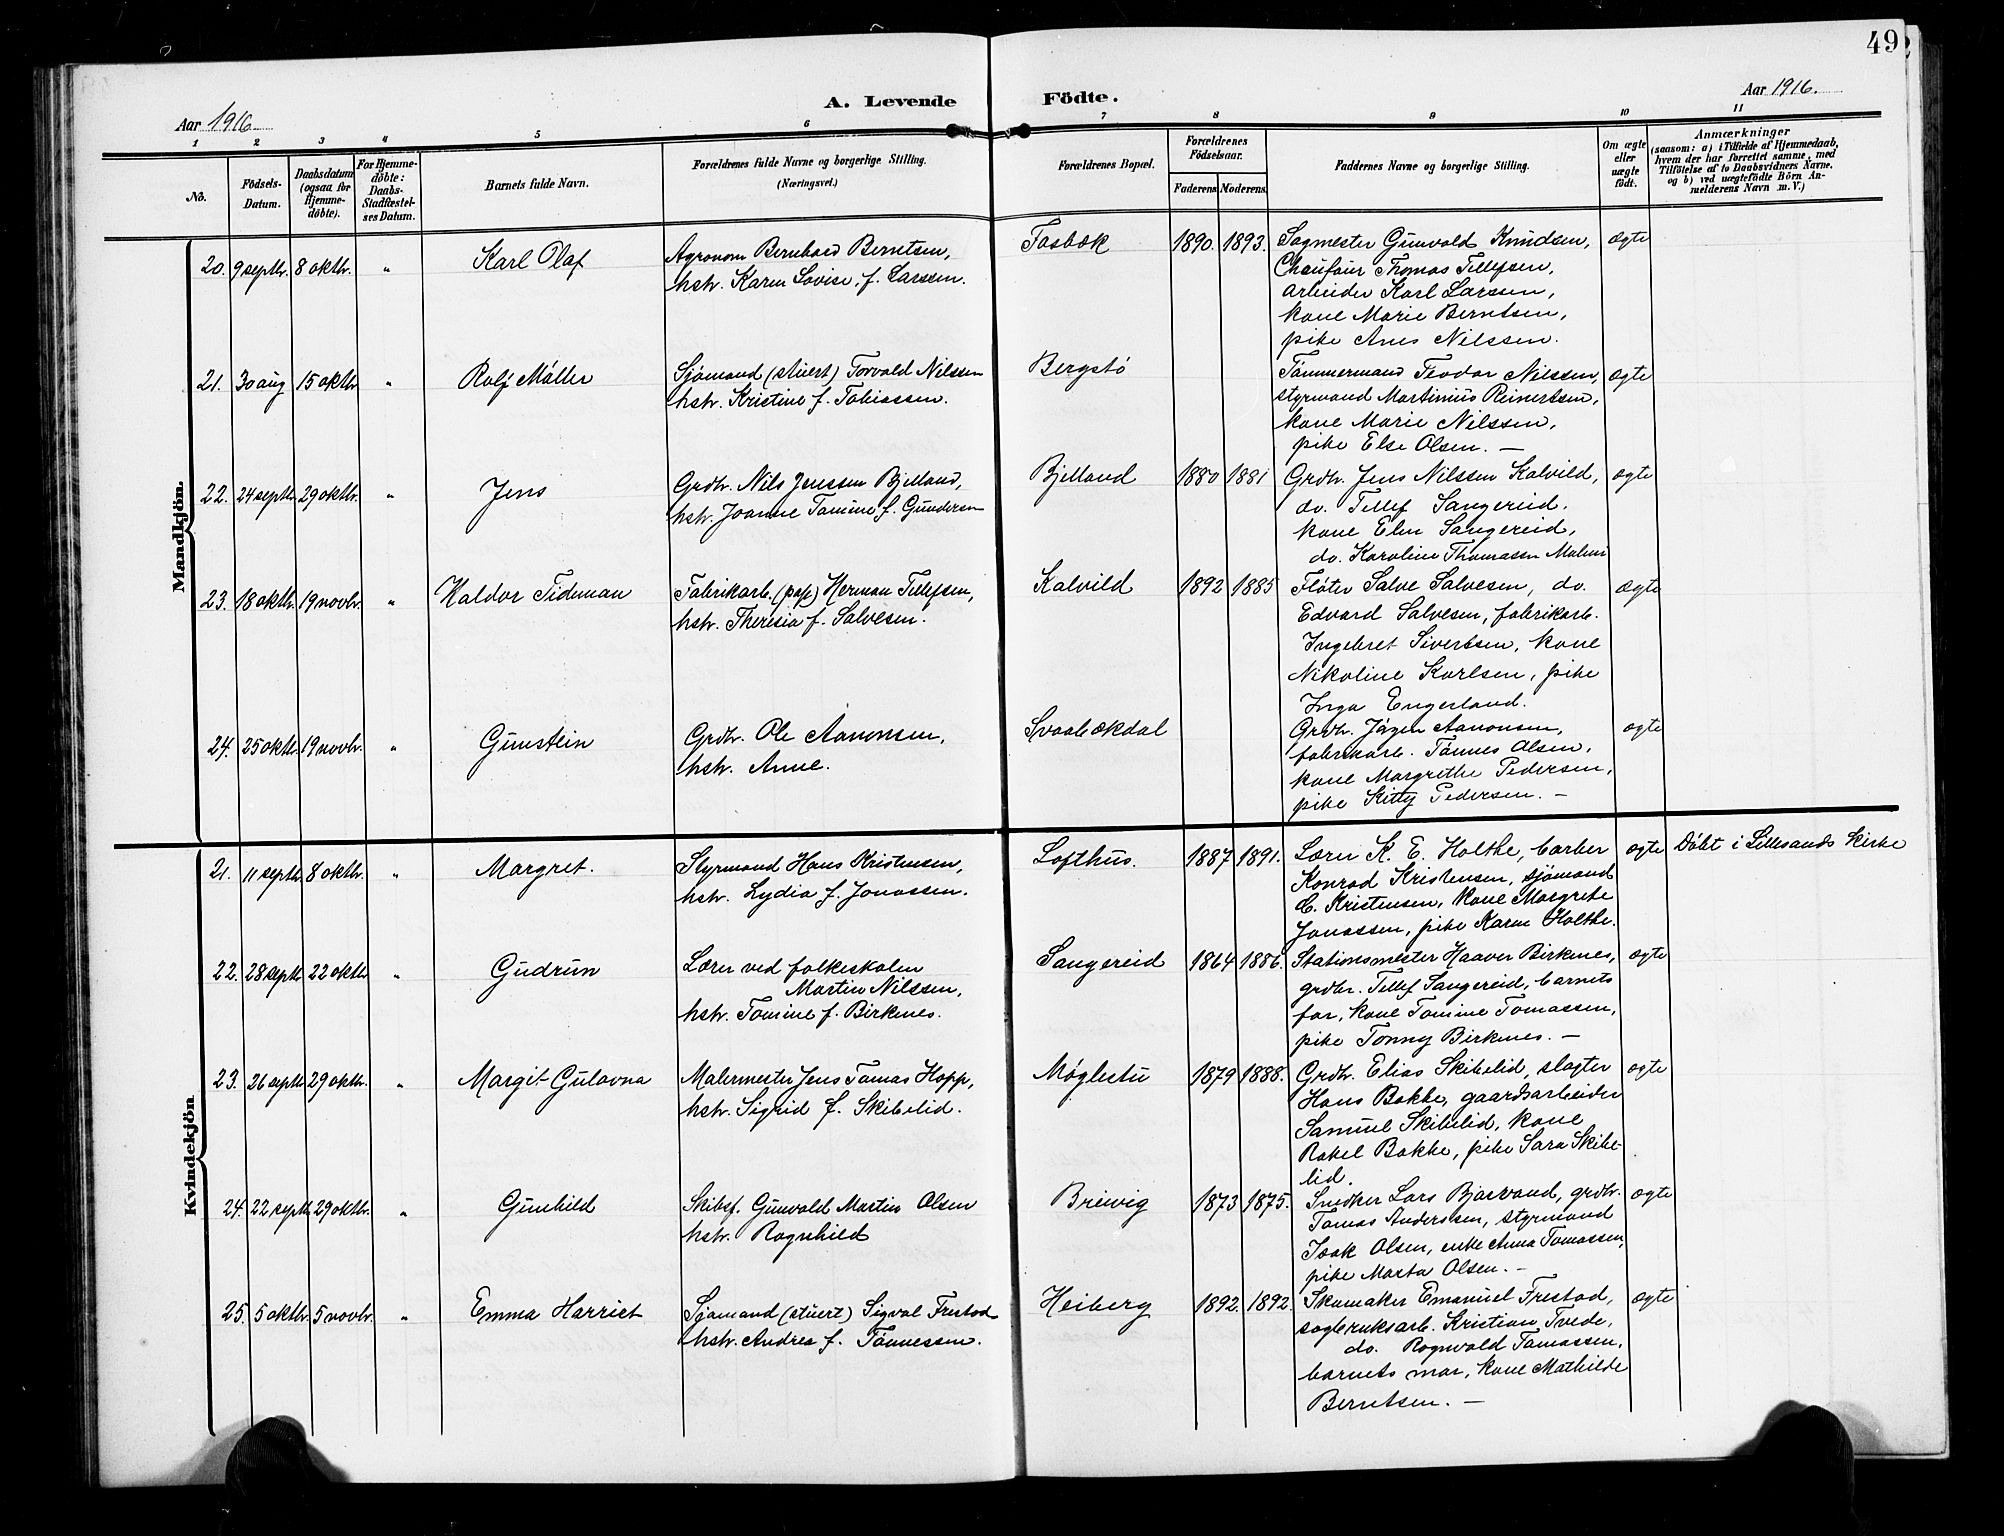 49
Aar 1916.
A. Levende Födte.
Aar 1916.
1 2 3 4 5 6 7 8 9 10 11
No.
Födsels-
Datum.
Daabsdatum
(ogsaa for
Hjemme-
döbte).
For Hjemme-
döbte:
Daabs-
Stadfæstel-
ses Datum.
Barnets fulde Navn.
Forældrenes fulde Navne og borgerlige Stilling.
(Næringsvei.)
Forældrenes Bopæl.
Forældrenes
Födselsaar.
Faderens Moderens.
Faddernes Navne og borgerlige Stilling.
Om ægte
eller
uægte
födt.
Anmærkninger
(saasom: a) i Tilfælde af Hjemmedaab,
hvem der har forrettet samme, med
Tilföielse af to Daabsvidners Navne.
og b) ved uægtefödte Börn An-
melderens Navn m. V.)
Mandkjön.
20. 9 septbr. 8 oktbr. " Karl Olaf
Agronom Bernhard Berntsen,
hstr. Karen Lovise, f. Larssen.
Fosbæk 1890. 1893.
Sagmester Gunvald Knudsen,
Chaufour Thomas Tellefsen,
arbeider Karl Larssen,
kone Marie Berntsen,
pike Anes Nilssen.
ægte
21. 30 aug 15 oktbr " Rolf Møller
Sjømand (stuert) Torvald Nilssen
hstr. Kristine f. Tobiassen.
Bergstø
Tømmermand Teodor Nilssen,
styrmand Martinius Reinertsen,
kone Marie Nilssen,
pike Else Olsen. —
ægte
22. 24 septbr. 29 oktbr. " Jens
Grdbr. Nils Jenssen Bjelland,
hstr. Joanne Tomine f. Gundersen
Bjelland 1880 1881
Grdbr. Jens Nilssen Kalvild,
do. Tellef Sangereid.
kone Elen Sangereid,
do. Karoline Thomassen Malmi
ægte
23. 18 oktbr. 19 novbr. " Haldor Tideman
Fabrikarb. (pap) Herman Tellefsen,
hstr. Theresia f. Salvesen.
Kalvild 1892 1885
Fløter Salve Salvesen, do.
Edvard Salvesen, fabrikarb.
Ingebret Sivertsen, kone
Nikoline Karlsen, pike
Inga Engerland.
ægte
24. 25 oktbr. 19 novbr. " Gunstein
Grdbr. Ole Aanonsen,
hstr. Anne.
Svaabækdal
Grdbr. Jögen Aanonsen,
fabrikarb. Tønnes Olsen,
kone Margrethe Pedersen,
pike Kitty Pedersen. —
ægte
Kvindekjön
21. 11 septbr. 8 oktbr. " Margret.
Styrmand Hans Kristensen,
hstr. Lydia f. Jonassen.
Lofthus. 1887 1891.
Lærer K. E. Holthe, barber
Konrad Kristensen, sjømand
C. Kristensen, kone Margrete
Jonassen, pike Karen Holthe.
ægte Døbt i Lillesands Kirke
22. 28 septbr 22 oktbr " Gudrun
Lærer ved folkeskolen
Martin Nilssen,
hstr. Tomine f. Birkenes.
Sangereid 1864 1886.
Stationsmester Haaver Birkenes,
grdbr. Tellef Sangereid, barnets
far, kone Tomine Tomassen,
pike Tonny Birkenes. —
ægte
23. 26 septbr 29 oktbr. " Margit Gulovna
Malermester Jens Tomas Hopp,
hstr. Sigrid f. Skibelid.
Møglestu 1879 1888.
Grdbr. Elias Skibelid, slagter
Hans Bakke, gaardsarbeider
Samuel Skibelid, kone
Rakel Bakke, pike Sara Skibe-
lid.
ægte
24. 22 septbr 29 oktbr. " Gunhild
Skibsf. Gunvald Martin Olsen
hstr. Ragnhild
Breivig 1873 1875.
Snedker Lars Bjorvand, grdbr.
Tomas Anderssen, styrmand
Isak Olsen, enke Anna Tomassen,
pike Marta Olsen. —
ægte
25. 5 oktbr. 5 novbr. " Emma Harriet
Sjømand (stuert) Sigval Frestad
hstr. Andrea f. Tønnessen.
Heiberg 1892. 1892.
Skomaker Emanuel Frestad,
sagbruksarb. Kristian Tvede,
do. Rognvald Tomassen,
barnets mor, kone Mathilde
Berntsen. —
ægte